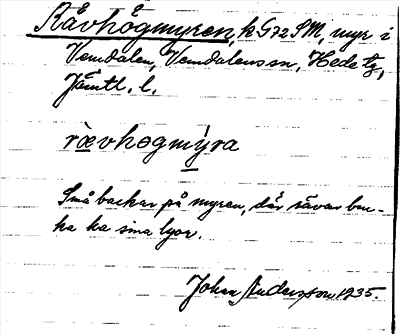 Rävhögmyren, k. G 72 SM, myr i
Vemdalen, Vemdalens sn, Hede tg,
Jämtl. l.
rævhøgmýra
Små backar på myren, där rävar bru-
ka ha sina lyor.
Johan Andersson 1935.